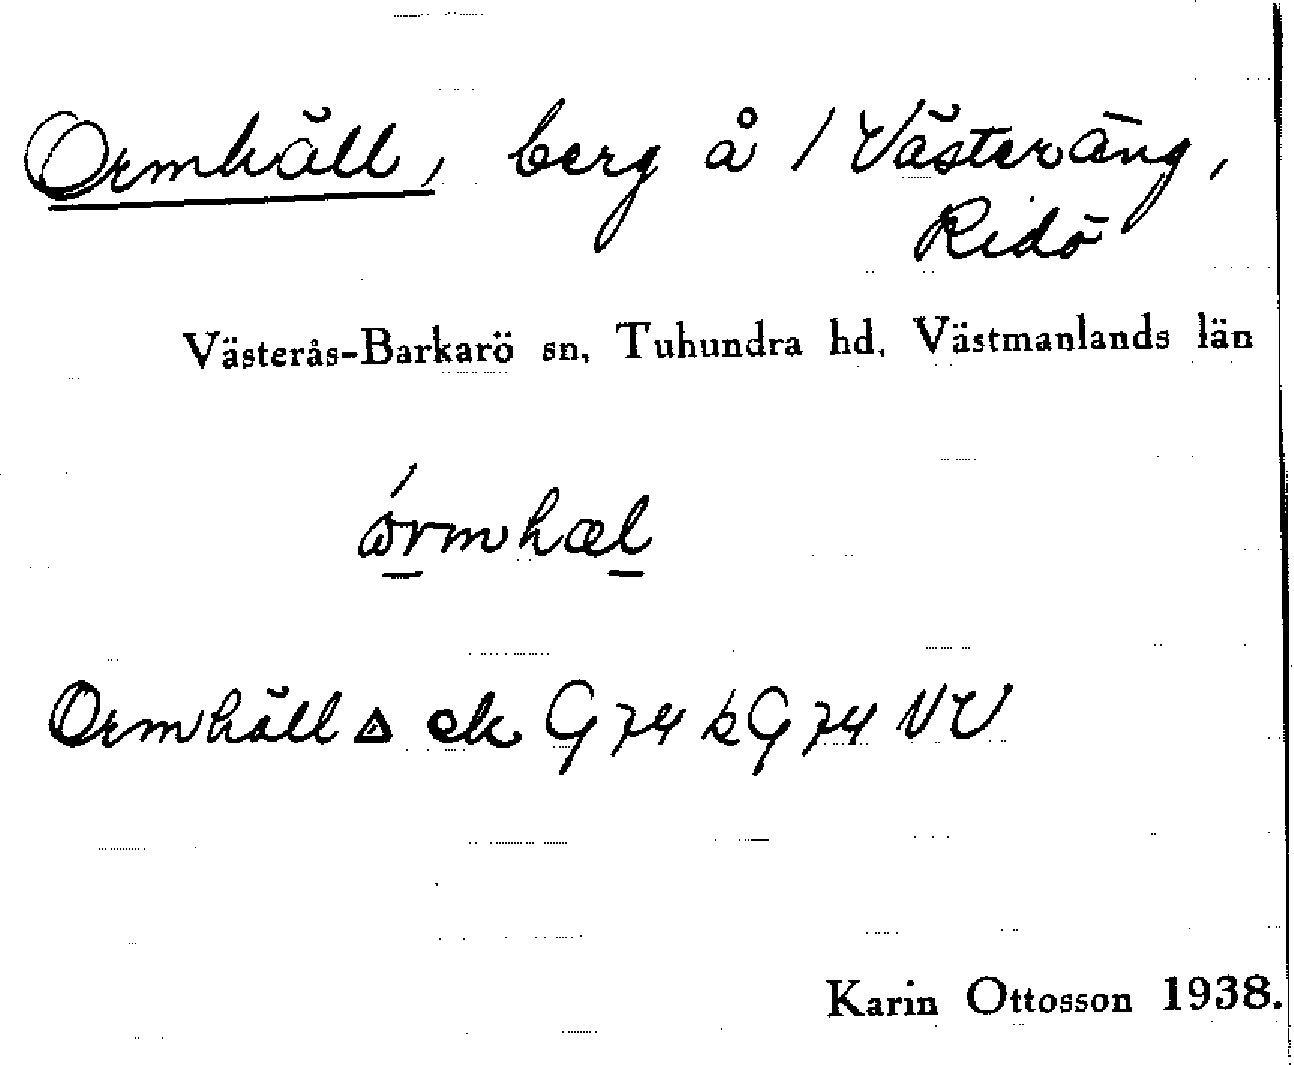 Ormhäll, berg å / Västeräng,
Ridö
Västerås-Barkarö sn, Tuhundra hd, Västmanlands län
Ormhäll △ ek G 74 k G 74 NV
Karin Ottosson 1938.